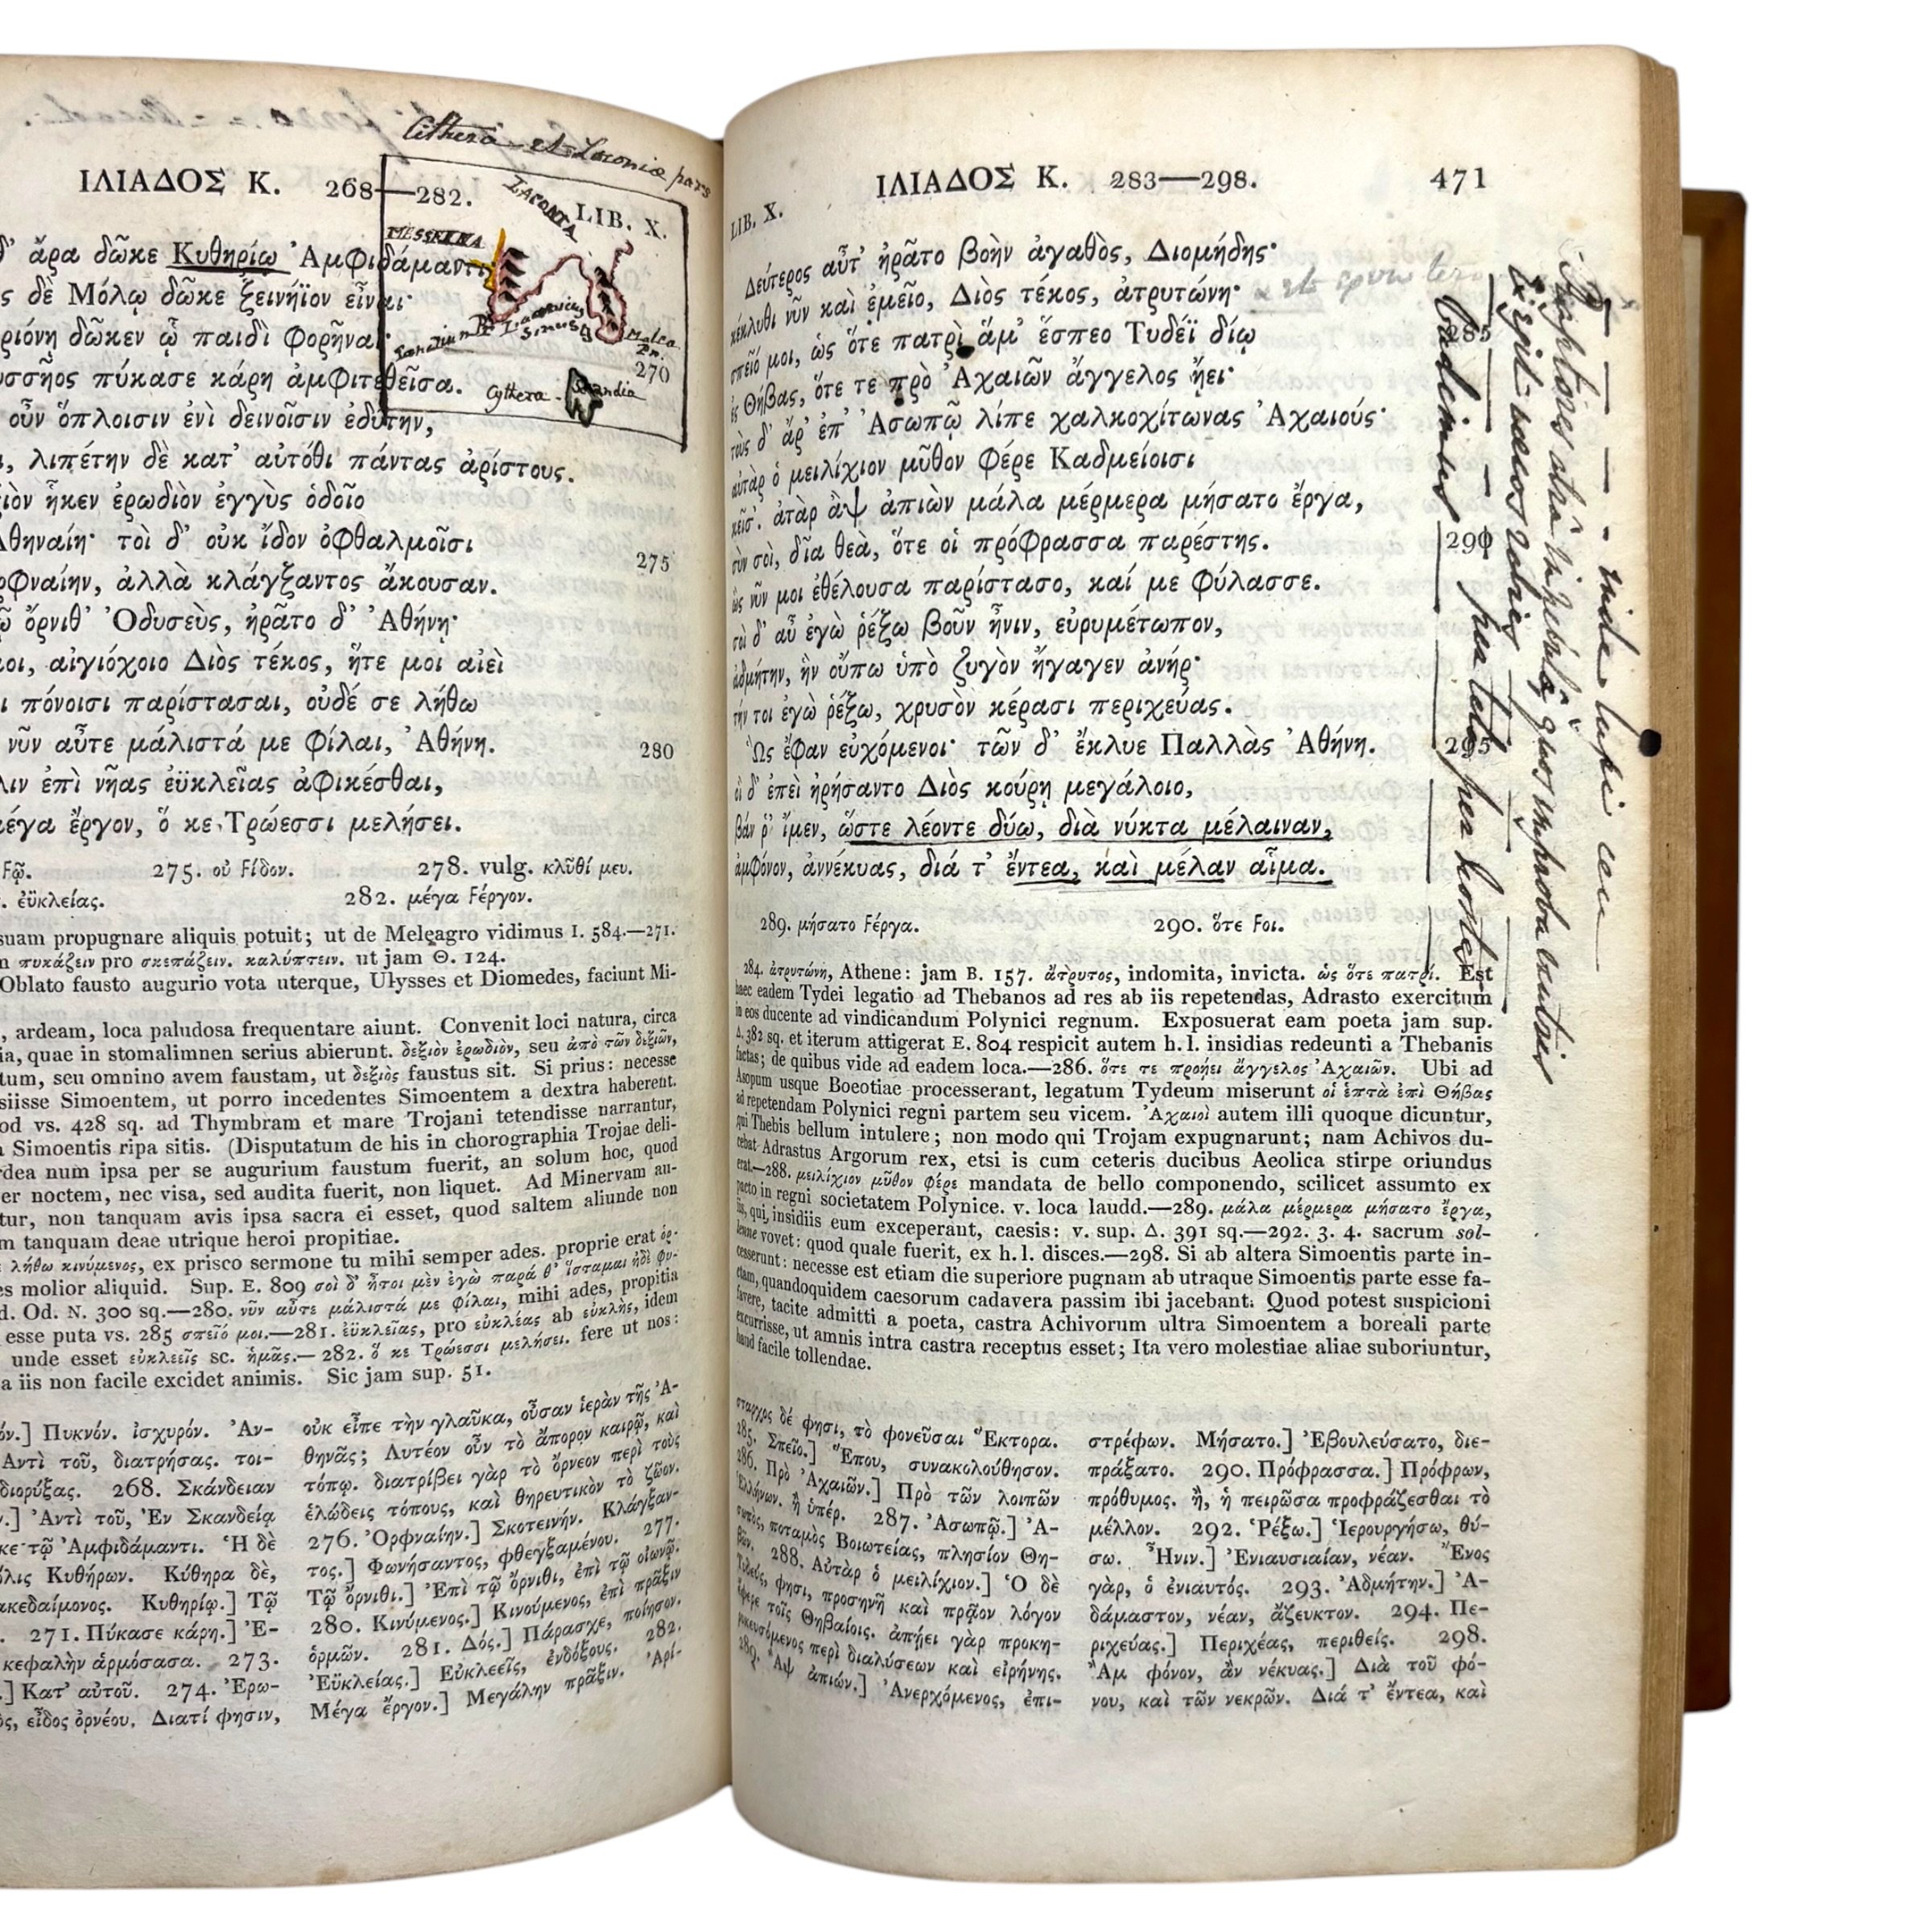 Cithera et Laconiæ pars
ΙΛΙΑΔΟΣ Κ. 268—282. LIB. X.
LACONIA
MESSENIA
Laconicus
Sinus
Malea
Pr.
Cythera - Scandia
δ' ἄρα δῶκε Κυθηρίῳ Ἀμφιδάμαντι
ς δὲ Μόλῳ δῶκε ξεινήϊον εἶναι·
ριόνῃ δῶκεν ᾧ παιδὶ φορῆναι·
υσσῆος πύκασε κάρη ἀμφιτεθεῖσα. 270
οὖν ὅπλοισιν ἐνὶ δεινοῖσιν ἐδύτην,
, λιπέτην δὲ κατ' αὐτόθι πάντας ἀρίστους.
ιὸν ἧκεν ἐρωδιὸν ἐγγὺς ὁδοῖο
Ἀθηναίη· τοὶ δ' οὐκ ἴδον ὀφθαλμοῖσι 275
ρφναίην, ἀλλὰ κλάγξαντος ἄκουσαν.
ῷ ὄρνιθ' Ὀδυσεὺς, ἠρᾶτο δ' Ἀθήνῃ·
οι, αἰγιόχοιο Διὸς τέκος, ἥτε μοι αἰεὶ
ι πόνοισι παρίστασαι, οὐδέ σε λήθω
νῦν αὖτε μάλιστά με φίλαι, Ἀθήνη. 280
λιν ἐπὶ νῆας ἐϋκλεῖας ἀφικέσθαι,
μέγα ἔργον, ὅ κε Τρώεσσι μελήσει.
Ϝῷ. 275. οὐ Ϝίδον. 278. vulg. κλῦθί μευ.
. ἐϋκλείας. 282. μέγα Ϝέργον.
suam propugnare aliquis potuit; ut de Meleagro vidimus I. 584.—271.
n πυκάζειν pro σκεπάζειν. καλύπτειν. ut jam Θ. 124.
Oblato fausto augurio vota uterque, Ulysses et Diomedes, faciunt Mi-
, ardeam, loca paludosa frequentare aiunt. Convenit loci natura, circa
ia, quae in stomalimnen serius abierunt. δεξιὸν ἐρωδιὸν, seu ἀπὸ τῶν δεξιῶν,
tum, seu omnino avem faustam, ut δεξιὸς faustus sit. Si prius: necesse
siisse Simoentem, ut porro incedentes Simoentem a dextra haberent.
od vs. 428 sq. ad Thymbram et mare Trojani tetendisse narrantur,
a Simoentis ripa sitis. (Disputatum de his in chorographia Trojae deli-
rdea num ipsa per se augurium faustum fuerit, an solum hoc, quod
er noctem, nec visa, sed audita fuerit, non liquet. Ad Minervam au-
tur, non tanquam avis ipsa sacra ei esset, quod saltem aliunde non
m tanquam deae utrique heroi propitiae.
λήθω κινύμενος, ex prisco sermone tu mihi semper ades. proprie erat ὁρ-
es molior aliquid. Sup. E. 809 σοὶ δ' ἤτοι μὲν ἐγὼ παρά θ' ἵσταμαι ἠδὲ φυ-
d. Od. N. 300 sq.—280. νῦν αὖτε μάλιστά με φίλαι, mihi ades, propitia
esse puta vs. 285 σπεῖό μοι.—281. ἐϋκλεῖας, pro εὐκλέας ab εὐκλὴς, idem
unde esset εὐκλεεῖς sc. ἡμᾶς.—282. ὅ κε Τρώεσσι μελήσει. fere ut nos:
a iis non facile excidet animis. Sic jam sup. 51.
όν.] Πυκνόν. ἰσχυρόν. Ἀν-
Ἀντὶ τοῦ, διατρήσας. τοι-
διορύξας. 268. Σκάνδειαν
ν.] Ἀντὶ τοῦ, Ἐν Σκανδείᾳ
κε τῷ Ἀμφιδάμαντι. Ἡ δὲ
όλις Κυθήρων. Κύθηρα δὲ,
ακεδαίμονος. Κυθηρίῳ.] Τῷ
. 271. Πύκασε κάρη.] Ἐ-
κεφαλὴν ἁρμόσασα. 273.
.] Κατ' αὐτοῦ. 274. Ἐρω-
ὸς, εἶδος ὀρνέου. Διατί φησιν,
οὐκ εἶπε τὴν γλαῦκα, οὖσαν ἱερὰν τῆς Ἀ-
θηνᾶς; Λυτέον οὖν τὸ ἄπορον καιρῷ, καὶ
τόπῳ. διατρίβει γὰρ τὸ ὄρνεον περὶ τοὺς
ἑλώδεις τόπους, καὶ θηρευτικὸν τὸ ζῶον.
276. Ὀρφναίην.] Σκοτεινήν. Κλάγξαν-
τος.] Φωνήσαντος, φθεγξαμένου. 277.
Τῷ ὄρνιθι.] Ἐπὶ τῷ ὄρνιθι, ἐπὶ τῷ οἰωνῷ.
280. Κινύμενος.] Κινούμενος, ἐπὶ πρᾶξιν
ὁρμῶν. 281. Δός.] Πάρασχε, ποίησον.
Ἐϋκλείας.] Εὐκλεεῖς, ἐνδόξους. 282.
Μέγα ἔργον.] Μεγάλην πρᾶξιν. Ἀρί-
ΙΛΙΑΔΟΣ Κ. 283—298. 471
LIB. X.
Δεύτερος αὖτ' ἠρᾶτο βοὴν ἀγαθὸς, Διομήδης·
κέκλυθι νῦν καὶ ἐμεῖο, Διὸς τέκος, ἀτρυτώνη·
σπεῖό μοι, ὡς ὅτε πατρὶ ἅμ' ἕσπεο Τυδέϊ δίῳ 285
ἐς Θήβας, ὅτε τε πρὸ Ἀχαιῶν ἄγγελος ᾔει·
τοὺς δ' ἄρ' ἐπ' Ἀσωπῷ λίπε χαλκοχίτωνας Ἀχαιούς·
αὐτὰρ ὁ μειλίχιον μῦθον φέρε Καδμείοισι
κεῖσ'. ἀτὰρ ἂψ ἀπιὼν μάλα μέρμερα μήσατο ἔργα,
σὺν σοὶ, δῖα θεὰ, ὅτε οἱ πρόφρασσα παρέστης. 290
ὣς νῦν μοι ἐθέλουσα παρίστασο, καί με φύλασσε.
σοὶ δ' αὖ ἐγὼ ῥέξω βοῦν ἦνιν, εὐρυμέτωπον,
ἀδμήτην, ἣν οὔπω ὑπὸ ζυγὸν ἤγαγεν ἀνήρ·
τήν τοι ἐγὼ ῥέξω, χρυσὸν κέρασι περιχεύας.
Ὣς ἔφαν εὐχόμενοι· τῶν δ' ἔκλυε Παλλὰς Ἀθήνη. 295
οἱ δ' ἐπεὶ ἠρήσαντο Διὸς κούρῃ μεγάλοιο,
βάν ῥ' ἴμεν, ὥστε λέοντε δύω, διὰ νύκτα μέλαιναν,
ἀμφόνον, ἀννέκυας, διά τ' ἔντεα, καὶ μέλαν αἷμα.
inde lupi ceu
Raptores atrâ in nebulâ, quos improba ventris
Exegit cæcos rabies
per tela per hostes
Vadimus
289. μήσατο Ϝέργα. 290. ὅτε Ϝοι.
284. ἀτρυτώνη, Athene: jam B. 157. ἄτρυτος, indomita, invicta. ὡς ὅτε πατρί. Est
haec eadem Tydei legatio ad Thebanos ad res ab iis repetendas, Adrasto exercitum
in eos ducente ad vindicandum Polynici regnum. Exposuerat eam poeta jam sup.
Δ. 382 sq. et iterum attigerat E. 804 respicit autem h. l. insidias redeunti a Thebanis
factas; de quibus vide ad eadem loca.—286. ὅτε τε προῄει ἄγγελος Ἀχαιῶν. Ubi ad
Asopum usque Boeotiae processerant, legatum Tydeum miserunt οἱ ἑπτὰ ἐπὶ Θήβας
ad repetendam Polynici regni partem seu vicem. Ἀχαιοὶ autem illi quoque dicuntur,
qui Thebis bellum intulere; non modo qui Trojam expugnarunt; nam Achivos du-
cebat Adrastus Argorum rex, etsi is cum ceteris ducibus Aeolica stirpe oriundus
erat.—288. μειλίχιον μῦθον φέρε mandata de bello componendo, scilicet assumto ex
pacto in regni societatem Polynice. v. loca laudd.—289. μάλα μέρμερα μήσατο ἔργα,
iis, qui insidiis eum exceperant, caesis: v. sup. Δ. 391 sq.—292. 3. 4. sacrum sol-
lenne vovet: quod quale fuerit, ex h. l. disces.—298. Si ab altera Simoentis parte in-
cesserunt: necesse est etiam die superiore pugnam ab utraque Simoentis parte esse fa-
ctam, quandoquidem caesorum cadavera passim ibi jacebant. Quod potest suspicioni
favere, tacite admitti a poeta, castra Achivorum ultra Simoentem a boreali parte
excurrisse, ut amnis intra castra receptus esset; Ita vero molestiae aliae suboriuntur,
haud facile tollendae.
σταρχος δέ φησι, τὸ φονεῦσαι Ἕκτορα.
285. Σπεῖο.] Ἕπου, συνακολούθησον.
286. Πρὸ Ἀχαιῶν.] Πρὸ τῶν λοιπῶν
Ἑλλήνων. ἢ ὑπέρ. 287. Ἀσωπῷ.] Ἀ-
σωπὸς, ποταμὸς Βοιωτείας, πλησίον Θη-
βῶν. 288. Αὐτὰρ ὁ μειλίχιον.] Ὁ δὲ
Τυδεύς, φησι, προσηνῆ καὶ πρᾷον λόγον
ἔφερε τοῖς Θηβαίοις. ἀπῄει γὰρ προκη-
ρυκευσόμενος περὶ διαλύσεων καὶ εἰρήνης.
289. Ἂψ ἀπιών.] Ἀνερχόμενος, ἐπι-
στρέφων. Μήσατο.] Ἐβουλεύσατο, διε-
πράξατο. 290. Πρόφρασσα.] Πρόφρων,
πρόθυμος. ἢ, ἡ πειρῶσα προφράζεσθαι τὸ
μέλλον. 292. Ῥέξω.] Ἱερουργήσω, θύ-
σω. Ἦνιν.] Ἐνιαυσιαίαν, νέαν. Ἔνος
γὰρ, ὁ ἐνιαυτός. 293. Ἀδμήτην.] Ἀ-
δάμαστον, νέαν, ἄζευκτον. 294. Πε-
ριχεύας.] Περιχέας, περιθείς. 298.
Ἂμ φόνον, ἂν νέκυας.] Διὰ τοῦ φό-
νου, καὶ τῶν νεκρῶν. Διά τ' ἔντεα, καὶ